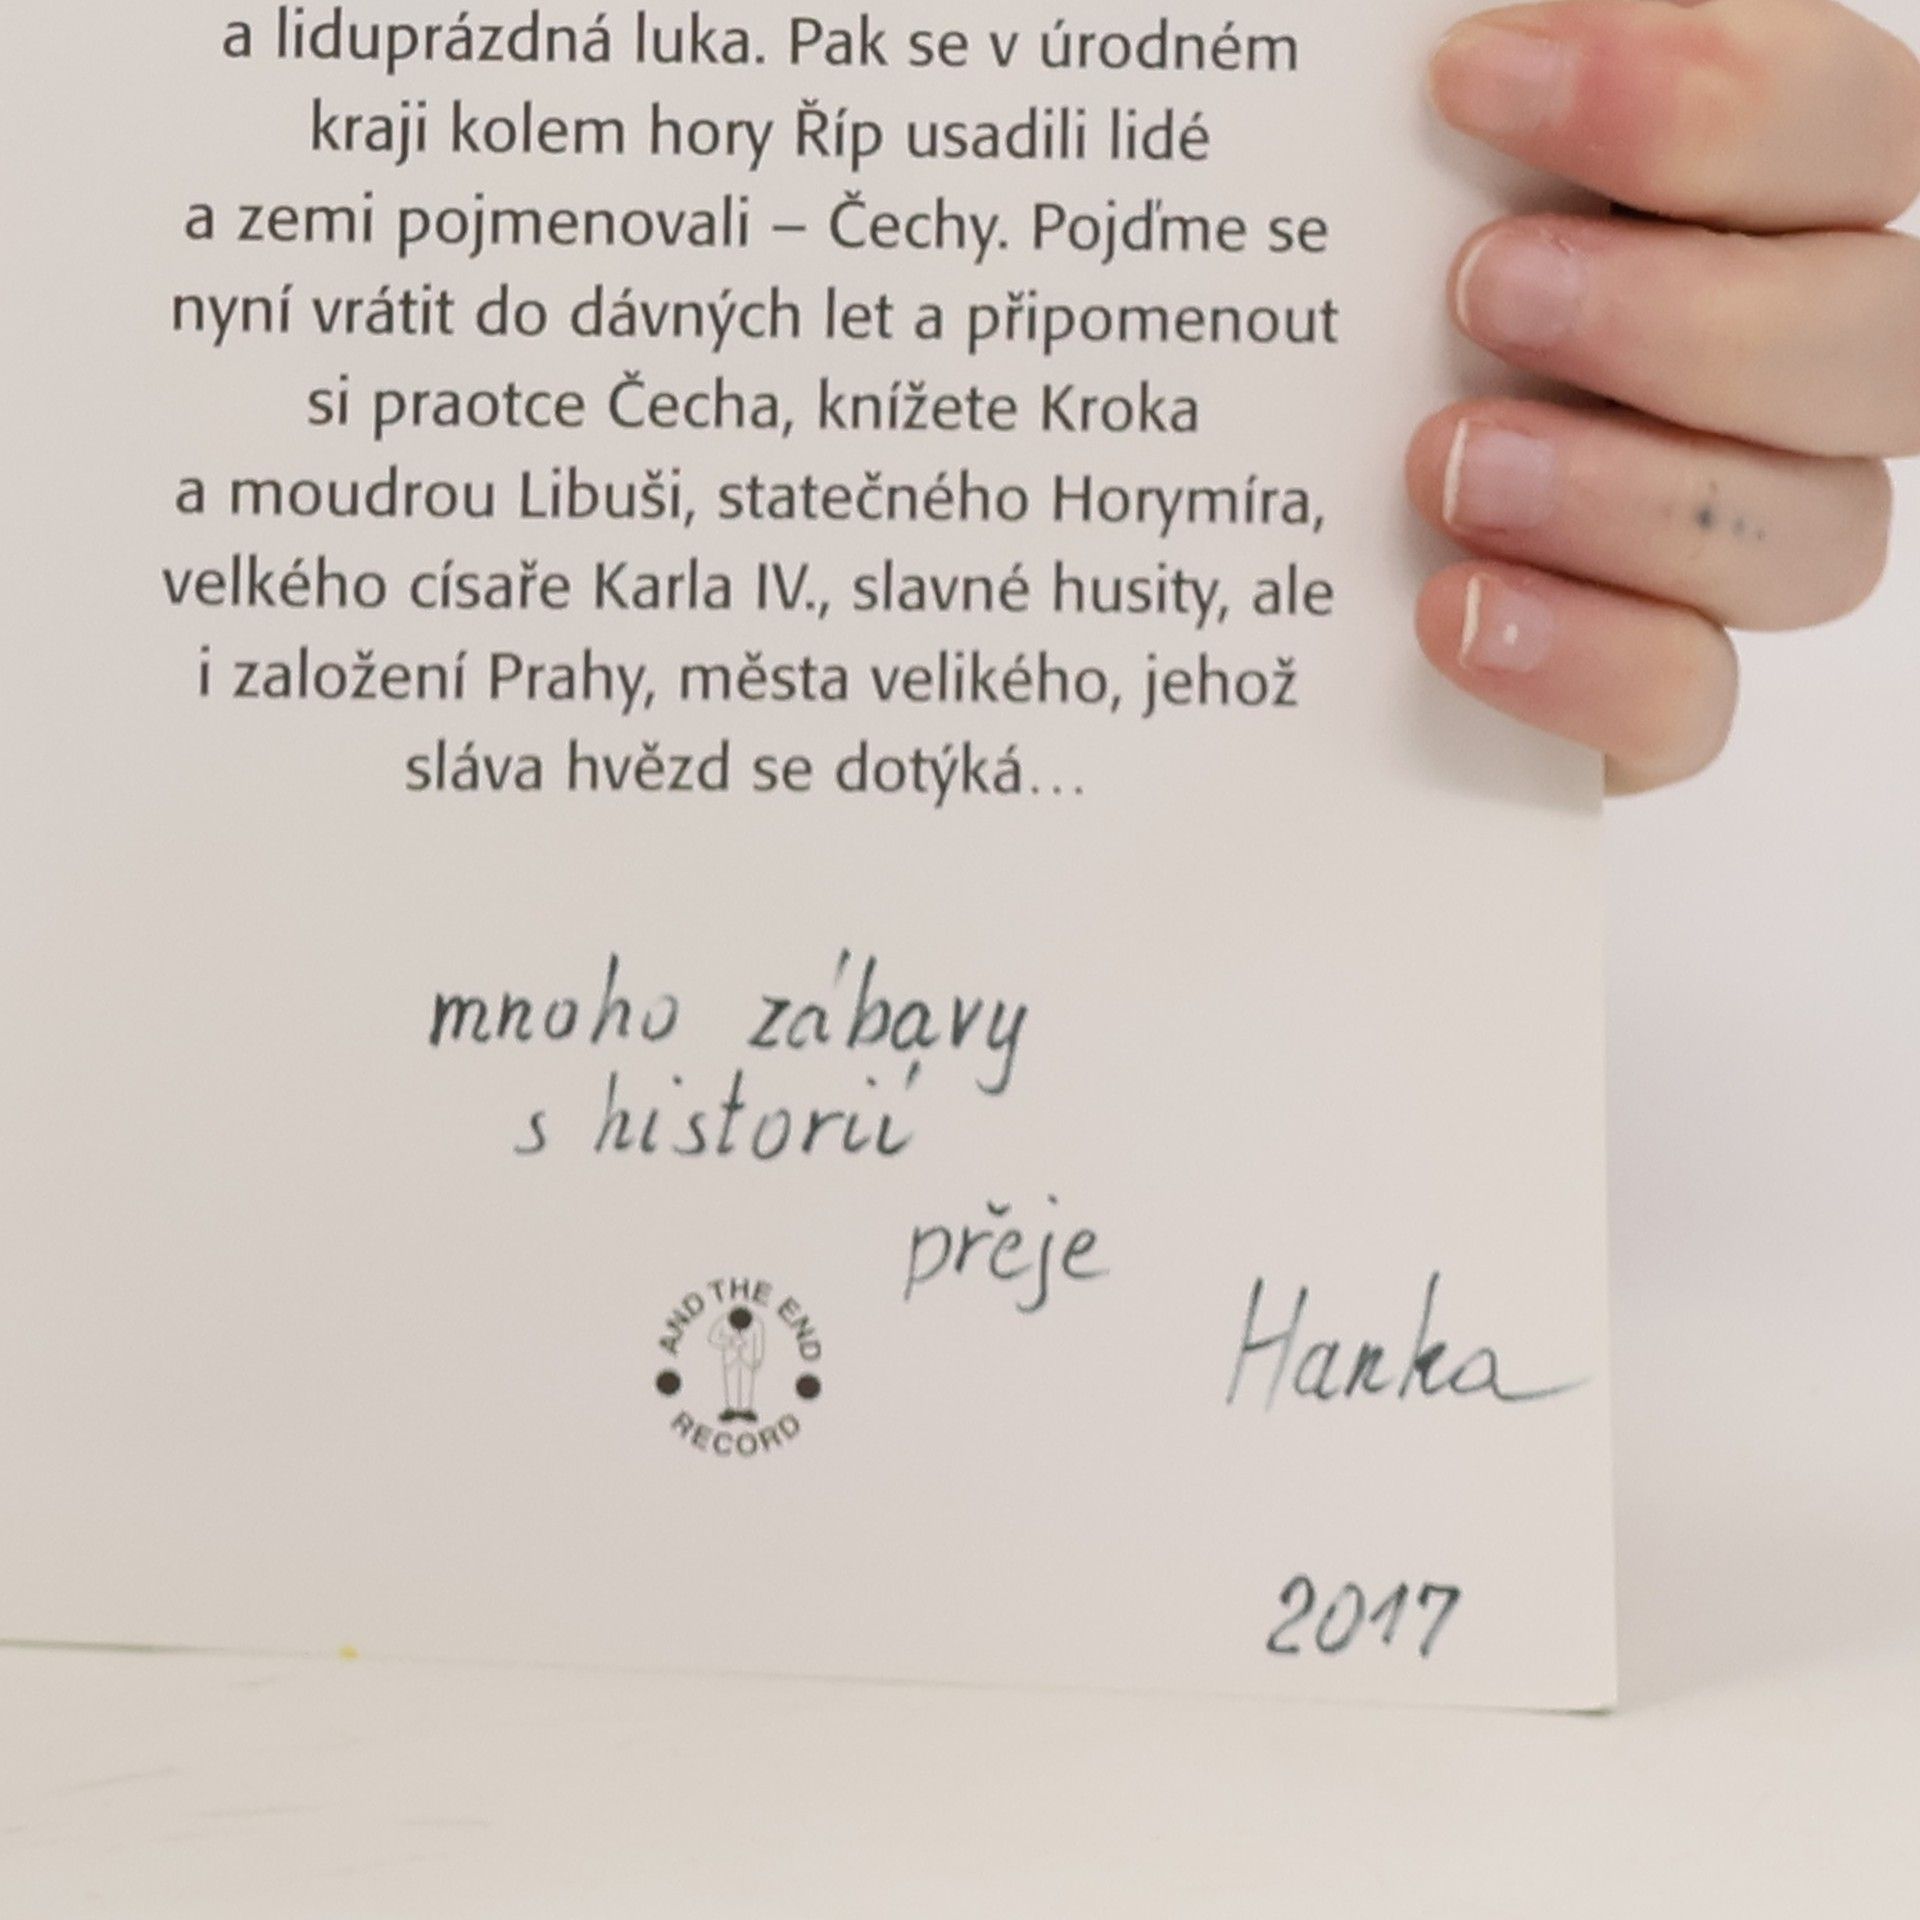 a liduprázdná luka. Pak se v úrodném
kraji kolem hory Říp usadili lidé
a zemi pojmenovali – Čechy. Pojďme se
nyní vrátit do dávných let a připomenout
si praotce Čecha, knížete Kroka
a moudrou Libuši, statečného Horymíra,
velkého císaře Karla IV., slavné husity, ale
i založení Prahy, města velikého, jehož
sláva hvězd se dotýká…
mnoho zábavy
s historií
přeje
Hanka
AND THE END
RECORD
2017